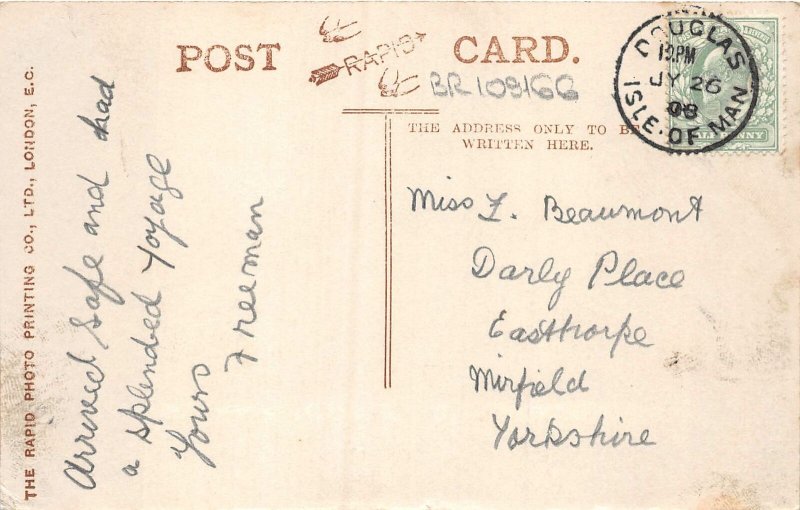 POST CARD.
RAPID
BR109166
THE ADDRESS ONLY TO BE
WRITTEN HERE.
DOUGLAS
12.PM
JY 26
08
ISLE·OF MAN
THE RAPID PHOTO PRINTING CO., LTD., LONDON, E.C.
Arrived Safe and had
a splended Voyage
Yours
Freeman
Miss F. Beaumont
Darly Place
Easthorpe
Mirfield
Yorkshire